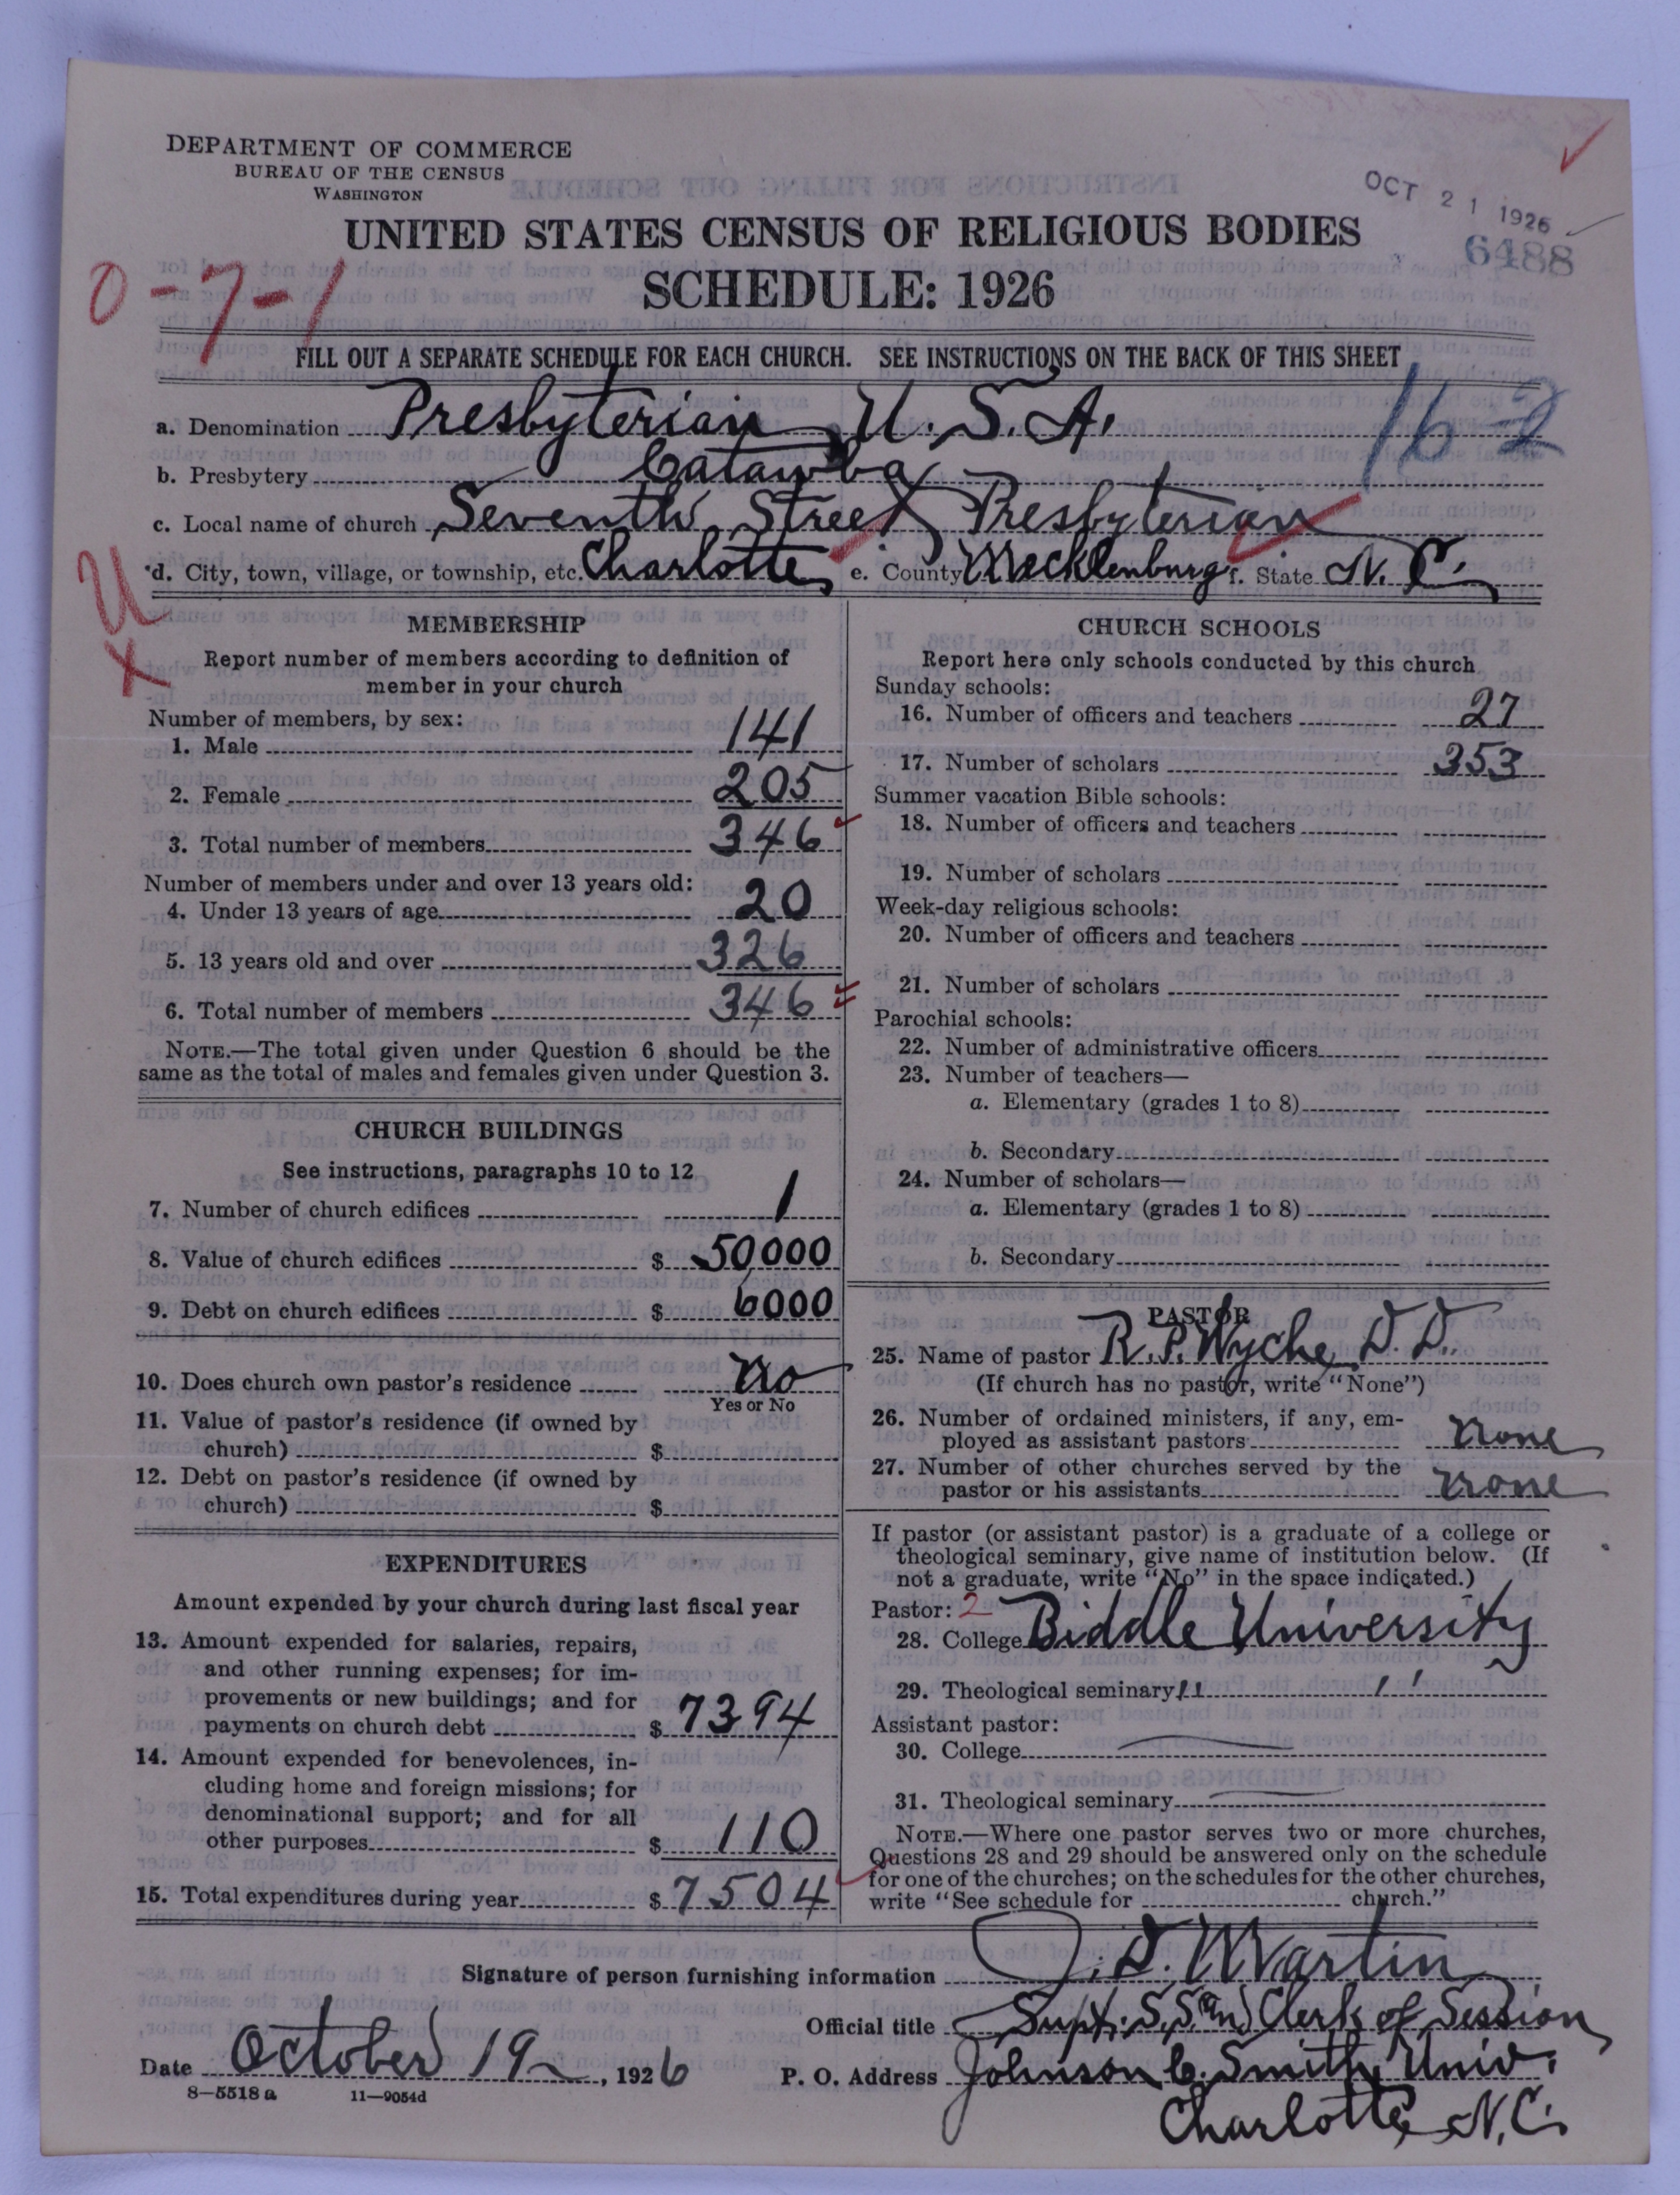 DEPARTMENT OF COMMERCE
BUREAU OF THE CENSUS
WASHINGTON
OCT 21 1926
6488
UNITED STATES CENSUS OF RELIGIOUS BODIES
SCHEDULE: 1926
0-7-1
FILL OUT A SEPARATE SCHEDULE FOR EACH CHURCH. SEE INSTRUCTIONS ON THE BACK OF THIS SHEET
16-2
a. Denomination Presbyterian U.S.A.
b. Presbytery Catawba
c. Local name of church Seventh Street Presbyterian
d. City, town, village, or township, etc. Charlotte e. County Mecklenburg f. State N.C.
U
X
MEMBERSHIP
Report number of members according to definition of
member in your church
Number of members, by sex:
1. Male 141
2. Female 205
3. Total number of members 346
Number of members under and over 13 years old:
4. Under 13 years of age 20
5. 13 years old and over 326
6. Total number of members 346
NOTE.—The total given under Question 6 should be the
same as the total of males and females given under Question 3.
CHURCH BUILDINGS
See instructions, paragraphs 10 to 12
7. Number of church edifices 1
8. Value of church edifices $ 50000
9. Debt on church edifices $ 6000
10. Does church own pastor's residence no
Yes or No
11. Value of pastor's residence (if owned by
church) $
12. Debt on pastor's residence (if owned by
church) $
EXPENDITURES
Amount expended by your church during last fiscal year
13. Amount expended for salaries, repairs,
and other running expenses; for im-
provements or new buildings; and for
payments on church debt $ 7394
14. Amount expended for benevolences, in-
cluding home and foreign missions; for
denominational support; and for all
other purposes $ 110
15. Total expenditures during year $ 7504
CHURCH SCHOOLS
Report here only schools conducted by this church
Sunday schools:
16. Number of officers and teachers 27
17. Number of scholars 353
Summer vacation Bible schools:
18. Number of officers and teachers
19. Number of scholars
Week-day religious schools:
20. Number of officers and teachers
21. Number of scholars
Parochial schools:
22. Number of administrative officers
23. Number of teachers—
a. Elementary (grades 1 to 8)
b. Secondary
24. Number of scholars—
a. Elementary (grades 1 to 8)
b. Secondary
PASTOR
25. Name of pastor R.P. Wyche, D.D.
(If church has no pastor, write "None")
26. Number of ordained ministers, if any, em-
ployed as assistant pastors none
27. Number of other churches served by the
pastor or his assistants none
If pastor (or assistant pastor) is a graduate of a college or
theological seminary, give name of institution below. (If
not a graduate, write "No" in the space indicated.)
Pastor: 2
28. College Biddle University
29. Theological seminary " "
Assistant pastor:
30. College
31. Theological seminary
NOTE.—Where one pastor serves two or more churches,
Questions 28 and 29 should be answered only on the schedule
for one of the churches; on the schedules for the other churches,
write "See schedule for church."
Signature of person furnishing information J. D. Martin
Official title Supt. S.S. and Clerk of Session
Date October 19, 1926 P. O. Address Johnson C. Smith Univ.
8—5518a 11—9054d
Charlotte, N.C.